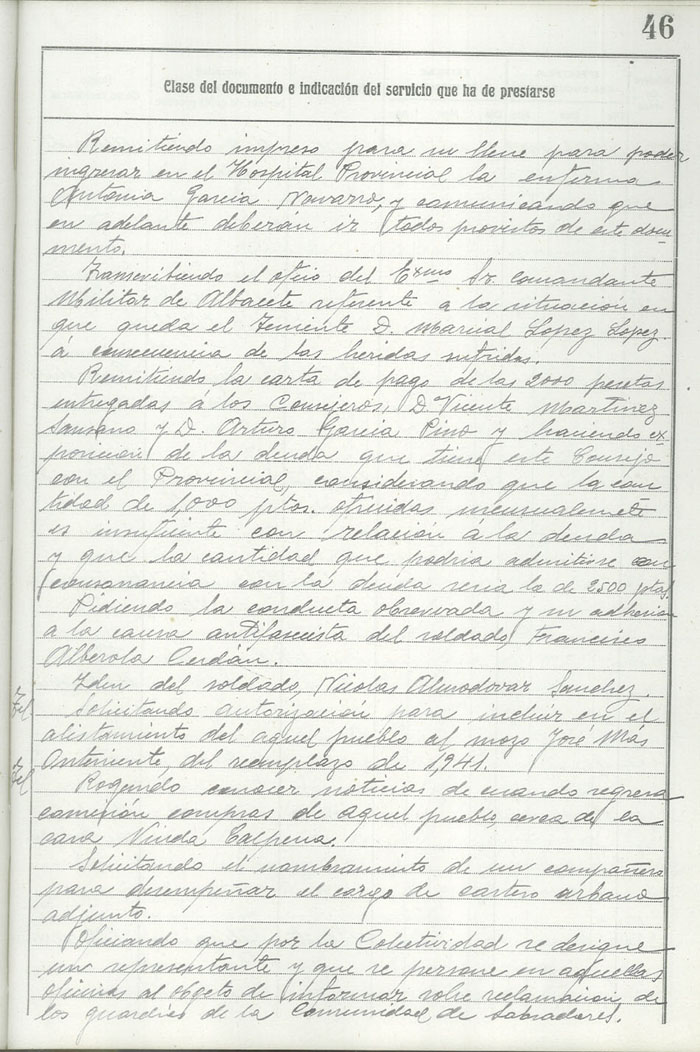 46
Clase del documento e indicación del servicio que ha de prestarse
Remitiendo impreso para su llene para poder
ingresar en el Hospital Provincial la enferma
Antonia Garcia Navarro, y comunicando que
en adelante deberán ir todos provistos de este docu-
mento.
Transcribiendo el oficio del Exmo Sr. Comandante
Militar de Albacete referente a la situación en
que queda el Teniente D. Marcial Lopez Lopez.
á consecuencia de las heridas sufridas.
Remitiendo la carta de pago de las 2000 pesetas
entregadas á los Consejeros, D. Vicente Martinez
y D. Arturo Garcia Pino y haciendo ex-
posición de la deuda que tiene este Consejo
con el Provincial, considerando que la can
tidad de 1,000 ptas. ofrecidas mensualmente
es insuficiente con relación á la deuda
y que la cantidad que podria admitirse en
consonancia con la deuda seria la de 2500 ptas.
Pidiendo la conducta observada y su adhesion
a la causa antifascista del soldado, Francisco
Alberola Cerdán.
Idem del soldado, Nicolas Almodovar Sanchez.
Tel.
Solicitando autorización para incluir en el
alistamiento del aquel pueblo al mozo José Mas
Anteniente, del reemplazo de 1,941.
Tel
Rogando conocer noticias de cuando regresa
comisión compras de aquel pueblo, cerca de la
casa Viuda Calpena.
Solicitando el nombramiento de un compañero
para desempeñar el cargo de cartero urbano
adjunto.
Oficiando que por la Colectividad se designe
un representante y que se persone en aquellas
oficinas al objeto de informar sobre reclamación de
los guardias de la Comunidad de Labradores.